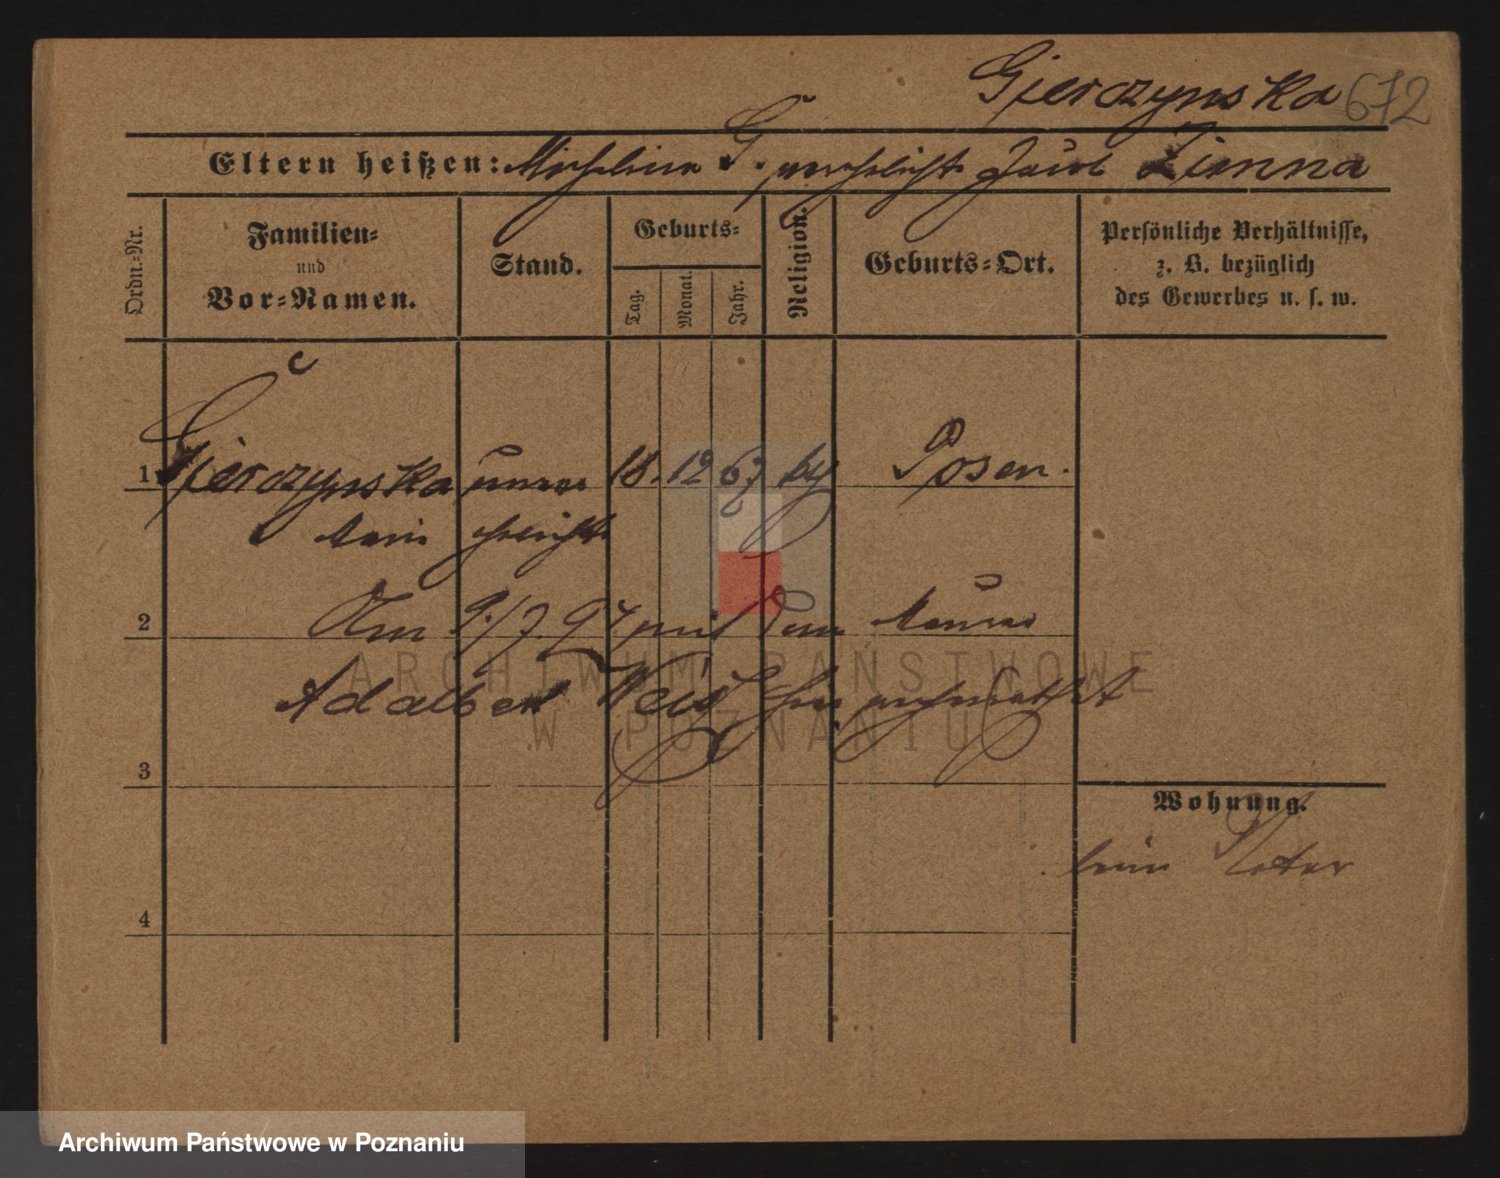 Gierczynska 672
Eltern heißen: Michalina G. verehelicht Jacob Zimna
Ordn.-Nr.
Familien-
und
Vor-Namen.
Stand.
Geburts-
Tag.
Monat.
Jahr.
Religion.
Geburts-Ort.
Persönliche Verhältnisse,
z. B. bezüglich
des Gewerbes u. s. w.
1 Gierczynska unver 18. 12 63 Posen.
ehelicht
2 Am 9./7. 94 mit dem Maurer
Adalbert
3
Wohnung.
beim Vater
4
ARCHIWUM PAŃSTWOWE
W POZNANIU
Archiwum Państwowe w Poznaniu